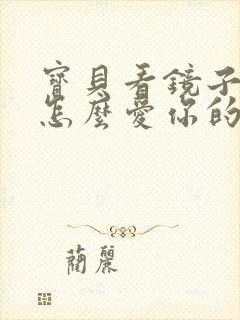 寶貝看鏡子
怎麼愛你的
蘭麗